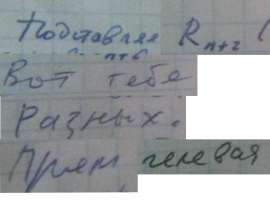 Подставляя R_{n+2} (
Вот тебе
Разных.
Прям гелевая